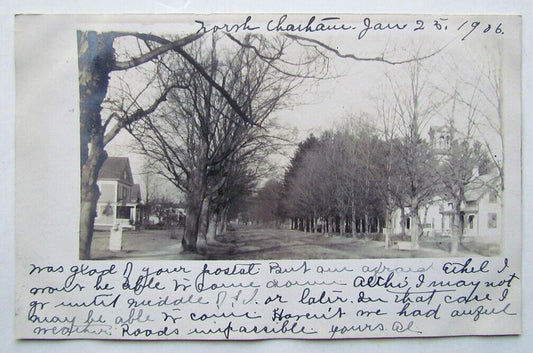 North Chatham. Jan 25, 1906.
Was glad of your postal But am afraid Ethel I
won't be able to come down I may not
go until middle of or later. In that case I
may be able to come Haven't we had awful
weather. Roads impassible yours. Al